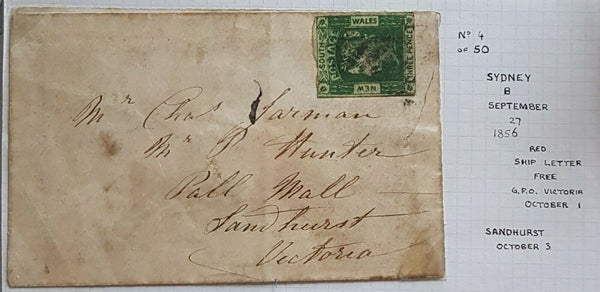 SOUTH
WALES
POSTAGE
THREE PENCE
NEW
Mr Chas Jarman
Mr P Hunter
Pall Mall
Sandhurst
Victoria
No 4
OF 50
SYDNEY
B
SEPTEMBER
27
1856
RED
SHIP LETTER
FREE
G.P.O. VICTORIA
OCTOBER 1
SANDHURST
OCTOBER 3